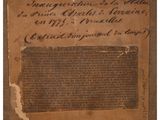 Inauguration de la Statue
du Prince Charles de Lorraine,
en 1775, à Bruxelles
(Extrait d'un journal du temps)